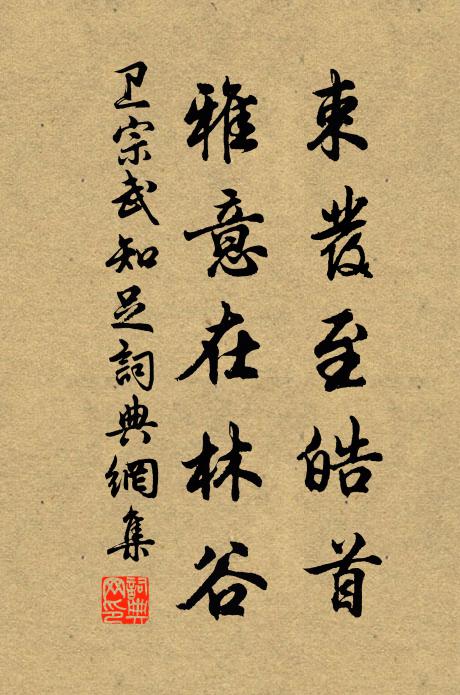 束發至皓首
雅意在林谷
卫宗武知足詞典網集
詞典网印